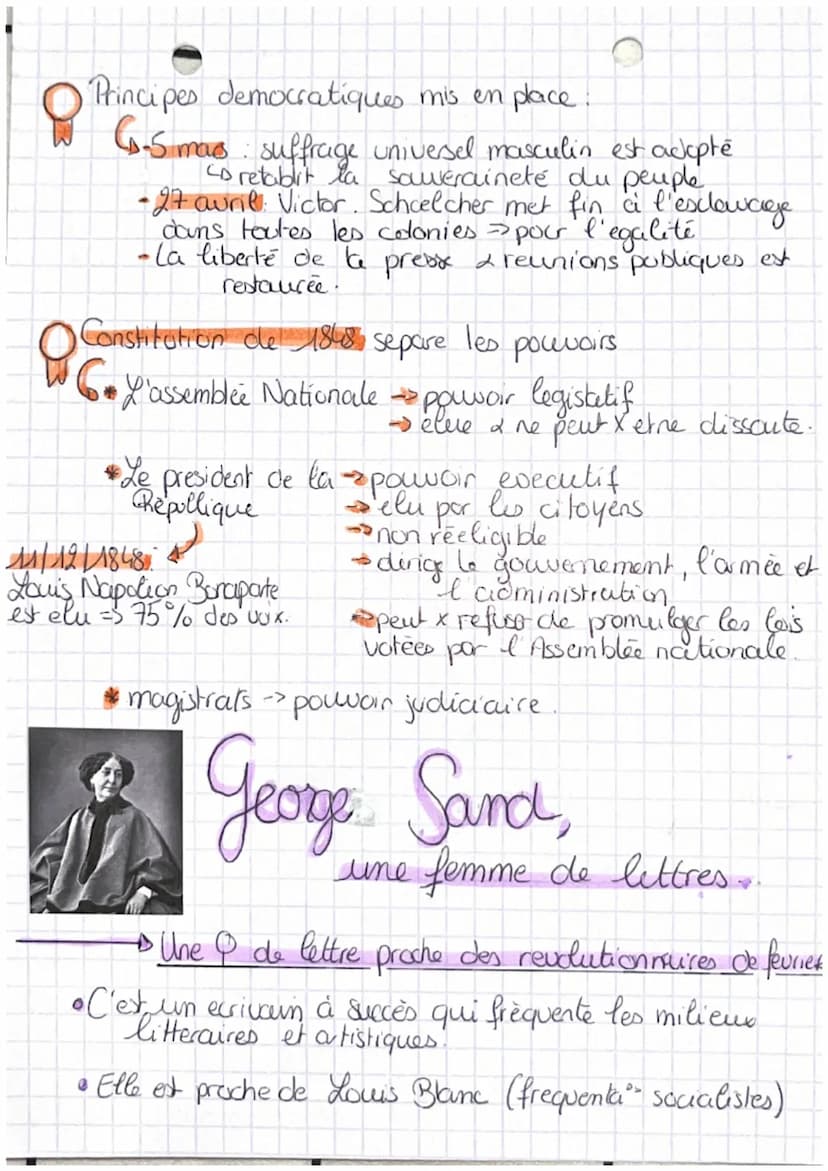 Principes democratiques mis en place :
- 5 mars : suffrage universel masculin est adopté
↳ retablit la souveraineté du peuple
- 27 avril : Victor. Schœlcher met fin à l'esclavage
dans toutes les colonies => pour l'egalité
- La liberté de la presse & reunions publiques est
restaurée.
Constitution de 1848 separe les pouvoirs
* L'assemblée Nationale → pouvoir legislatif
→ élue & ne peut X etre dissoute.
* Le president de la → pouvoir executif
Républlique → élu par les citoyens
→ non rééligible
11/12/1848: → dirige le gouvernement, l'armée et
Louis Napoléon Bonaparte l'administration
est elu => 75% des voix. → peut x refuser de promulger les lois
votées par l'Assemblée nationale.
* magistrats -> pouvoir judiciaire.
George Sand,
une femme de lettres.
→ Une ♀ de lettre proche des revolutionnaires de fevrier
• C'est un ecrivain à succès qui fréquente les milieux
litteraires et artistiques.
• Elle est proche de Louis Blanc (frequenta° socialistes)